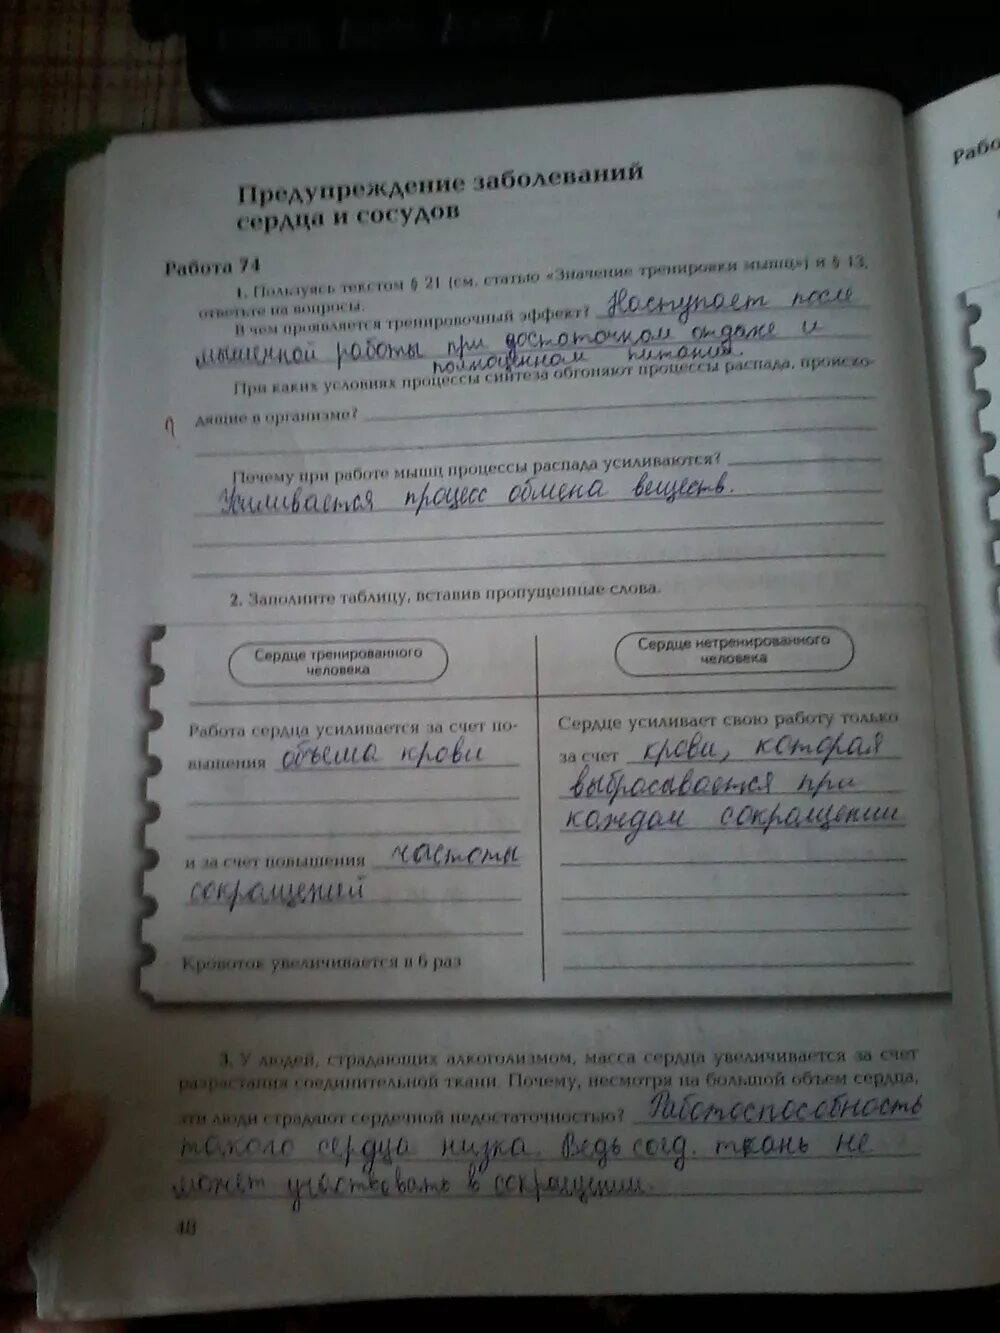 Предупреждение заболеваний
сердца и сосудов
Работа 74
1. Пользуясь текстом § 21 (см. статью «Значение тренировки мышц») и § 13,
ответьте на вопросы.
В чем проявляется тренировочный эффект? Наступает после
мышечной работы при достаточном отдыхе и
полноценном питании.
При каких условиях процессы синтеза обгоняют процессы распада, происхо-
дящие в организме?
Почему при работе мышц процессы распада усиливаются?
Усиливается процесс обмена веществ.
2. Заполните таблицу, вставив пропущенные слова.
Сердце тренированного
человека
Работа сердца усиливается за счет по-
вышения объема крови
и за счет повышения частоты
сокращений
Кровоток увеличивается в 6 раз
Сердце нетренированного
человека
Сердце усиливает свою работу только
за счет крови, которая
выбрасывается при
каждом сокращении
3. У людей, страдающих алкоголизмом, масса сердца увеличивается за счет
разрастания соединительной ткани. Почему, несмотря на большой объем сердца,
эти люди страдают сердечной недостаточностью? Работоспособность
такого сердца низка. Ведь соед. ткань не
может участвовать в сокращении.
48
Рабо